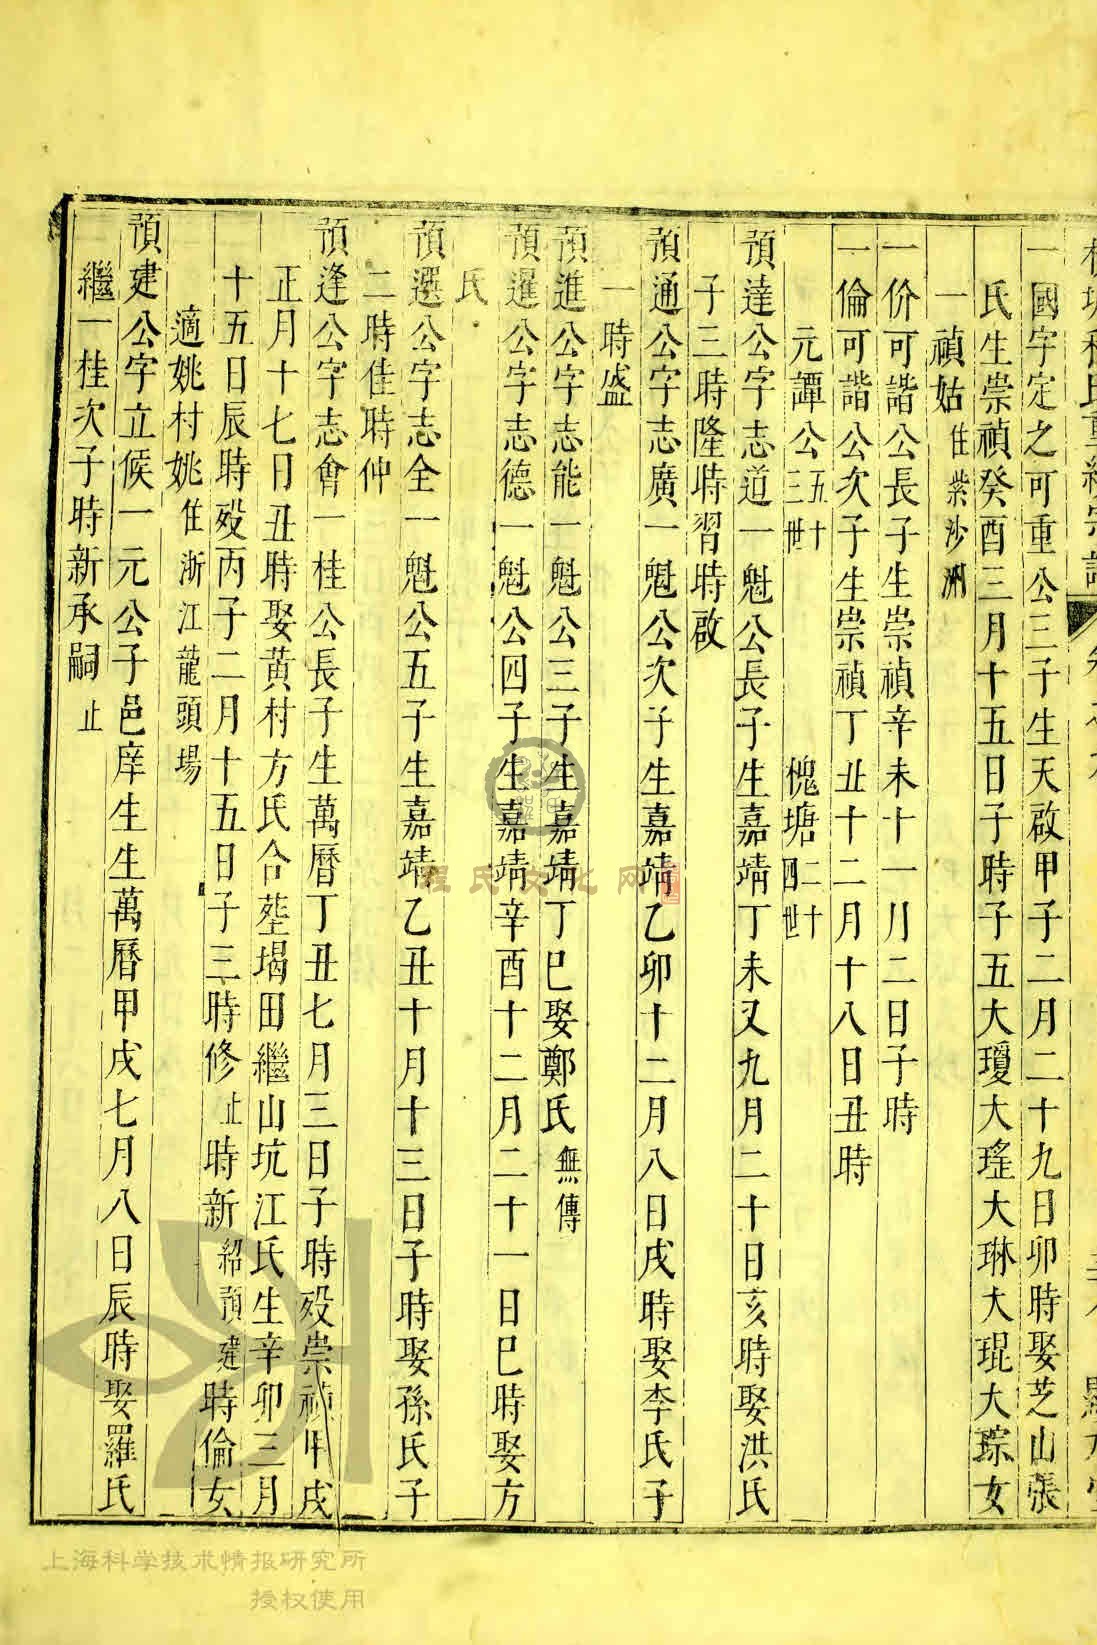 一國字定之可重公三子生天啟甲子二月二十九日卯時娶芝山張
氏生崇禎癸酉三月十五日子時子五大瓊大瑤大琳大琨大琮女
一禎姑住紫沙洲
一价可諧公長子生崇禎辛未十一月二日子時
一倫可諧公次子生崇禎丁丑十二月十八日丑時
元譚公五十三世 槐塘二十四世
預達公字志道一魁公長子生嘉靖丁未又九月二十日亥時娶洪氏
子三時隆時習時啟
預通公字志廣一魁公次子生嘉靖乙卯十二月八日戌時娶李氏子
一時盛
預進公字志能一魁公三子生嘉靖丁巳娶鄭氏無傳
預暹公字志德一魁公四子生嘉靖辛酉十二月二十一日巳時娶方
氏
預選公字志全一魁公五子生嘉靖乙丑十月十三日子時娶孫氏子
二時佳時仲
預逢公字志會一桂公長子生萬曆丁丑七月三日子時歿崇禎甲戌
正月十七日丑時娶黃村方氏合塟堨田繼山坑江氏生辛卯三月
十五日辰時歿丙子二月十五日子三時修止時新紹預建時倫女
適姚村姚住浙江龍頭場
預建公字立候一元公子邑庠生生萬曆甲戌七月八日辰時娶羅氏
繼一桂次子時新承嗣止
程氏文化网
上海科学技术情报研究所
授权使用